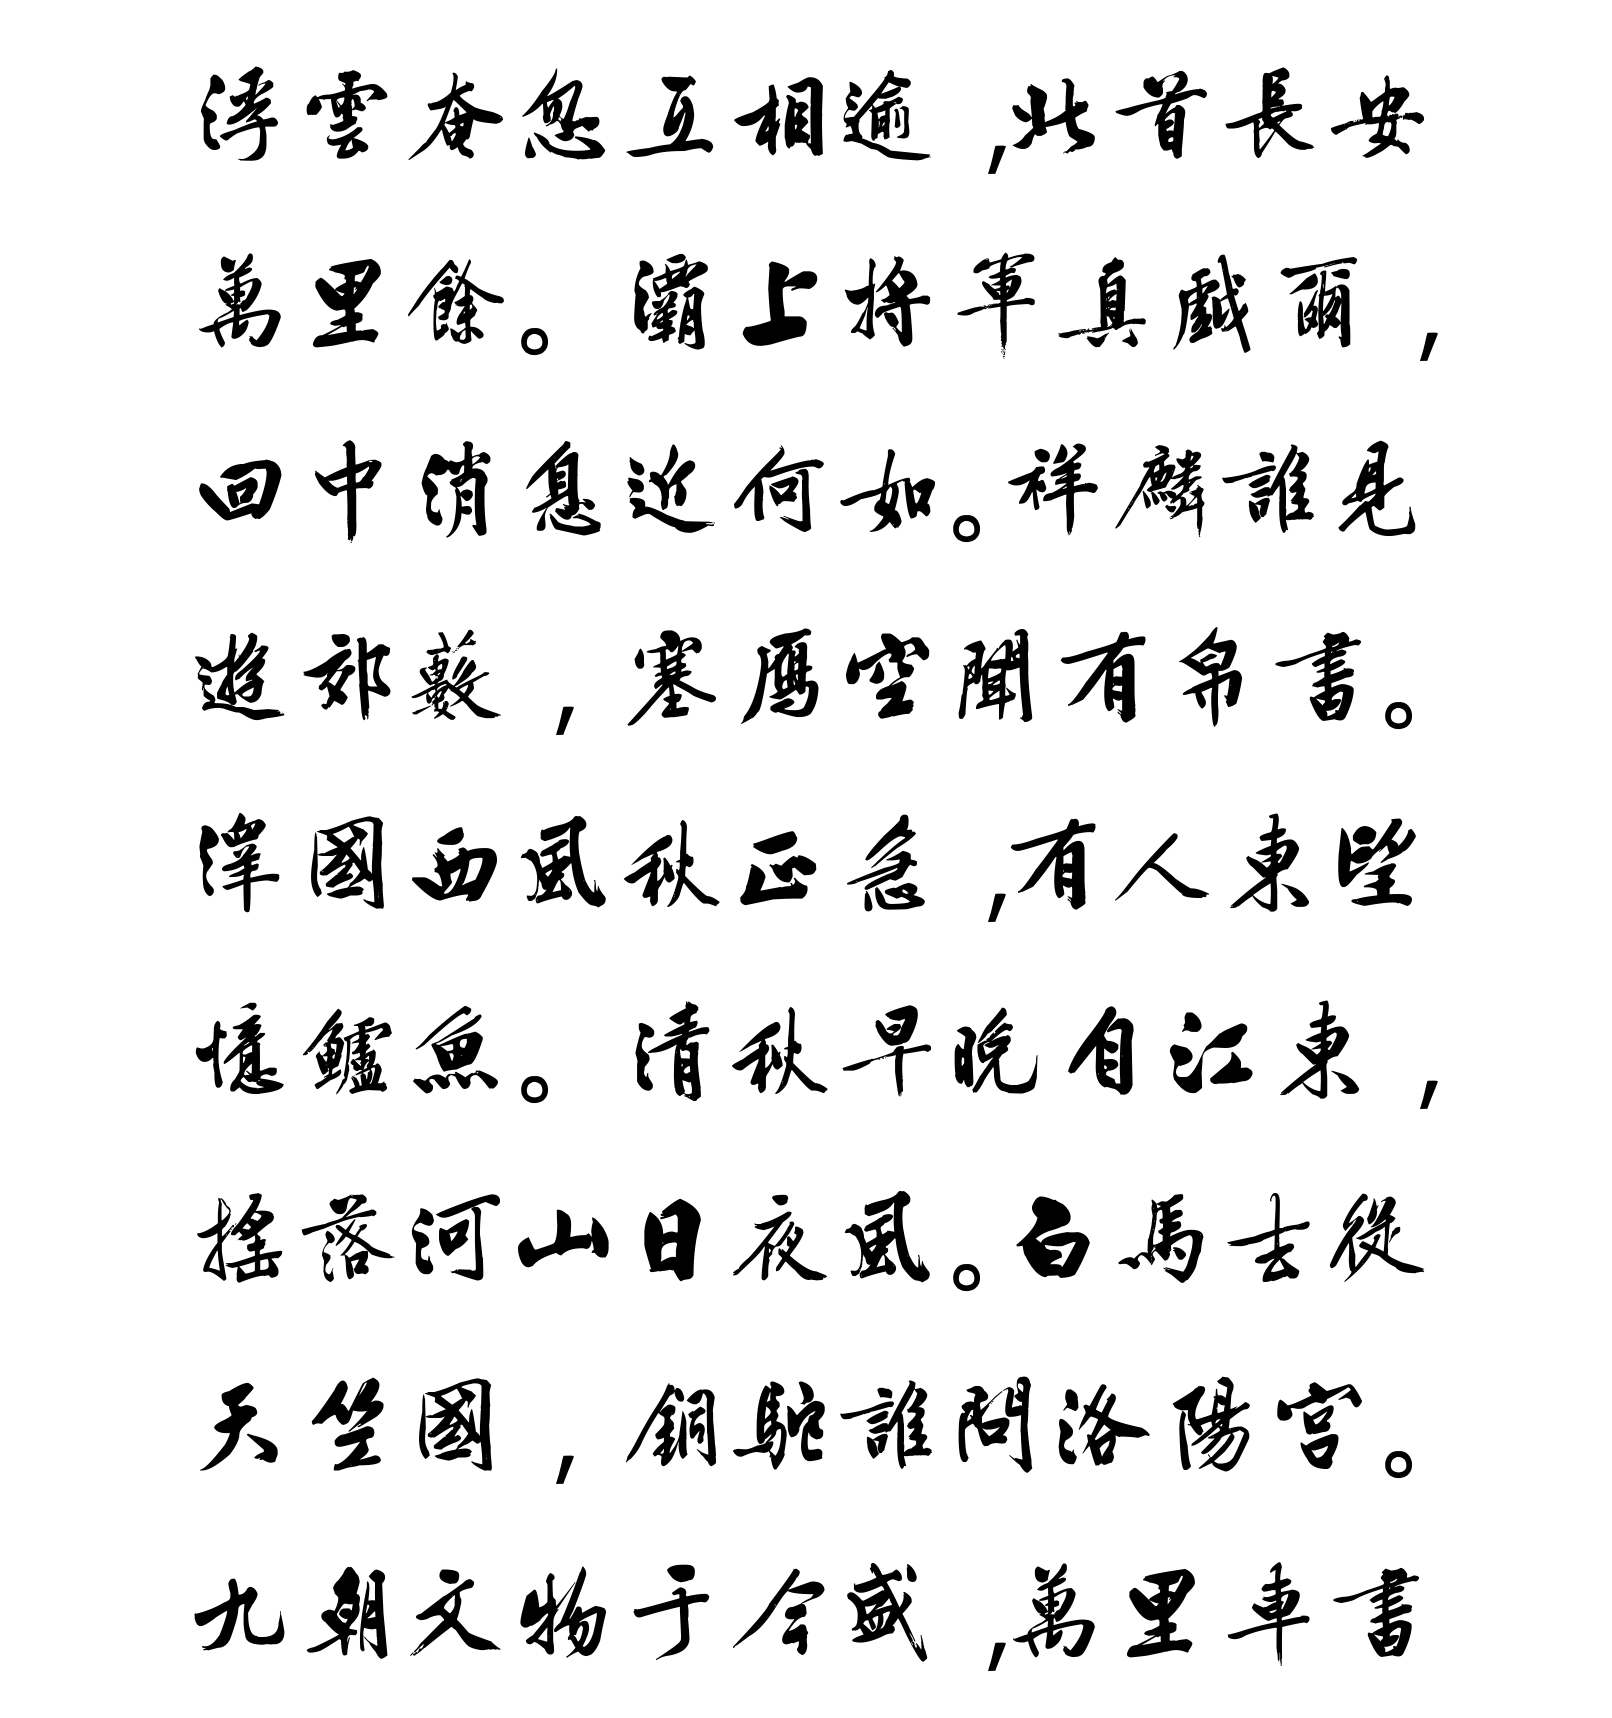 浮雲奄忽互相逾,此首長安
萬里餘。灞上將軍真戲爾,
回中消息近何如。祥麟誰見
遊郊藪,塞鴈空聞有帛書。
澤國西風秋正急,有人東望
憶鱸魚。清秋早晚自江東,
搖落河山日夜風。白馬去從
天竺國,銅駝誰問洛陽宮。
九朝文物于今盛,萬里車書